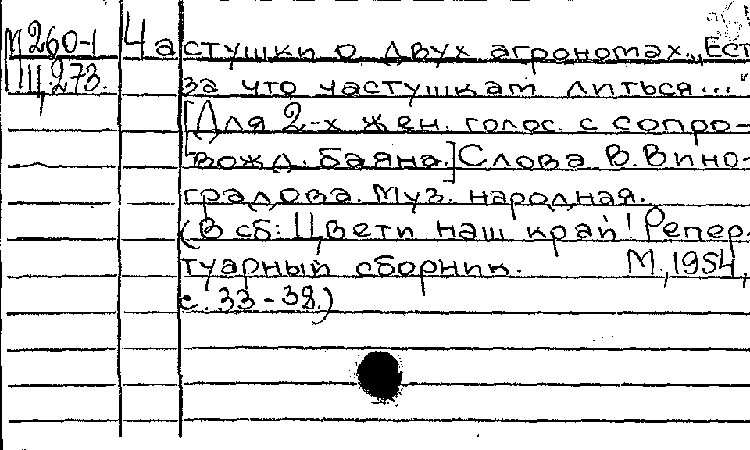 М260-1 Частушки о двух агрономах. „Ест
Ц273. за что частушкам литься..."
[Для 2-х жен. голос. с сопро-
вожд. баяна.] Слова В. Вино-
градова. Муз. народная.
(В сб: Цвети наш край! Репер-
туарный сборник. М., 1954,
с. 33-38.)